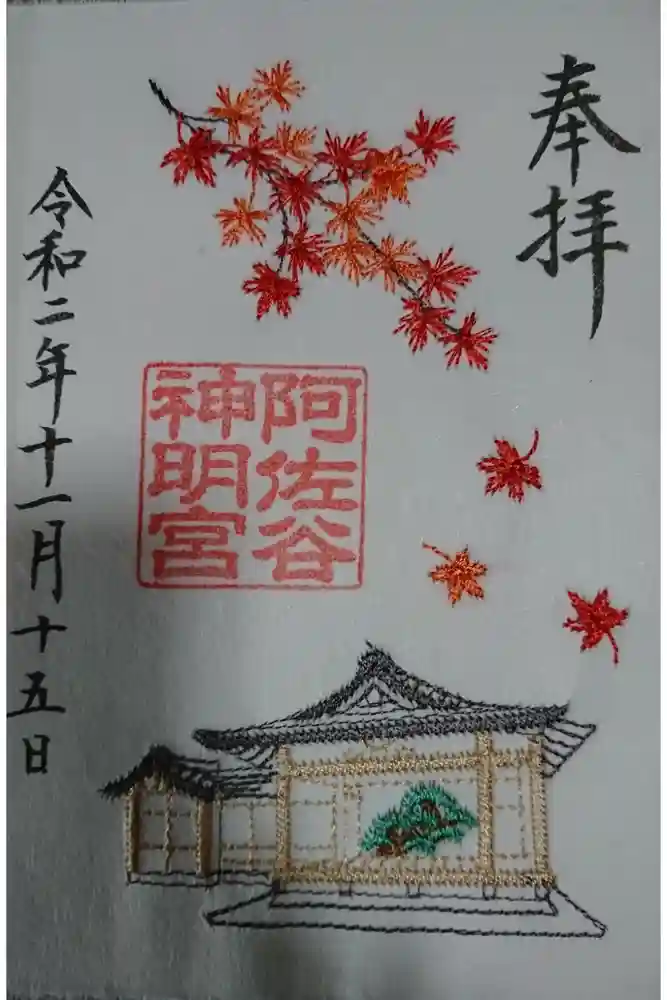 奉拝
阿佐谷
神明宮
令和二年十一月十五日